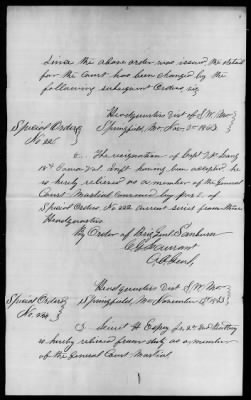 Since the above order was issued, the detail
for the Court has been changed by the
following subsequent Orders, viz
Headquarters Dist of S.W. Mo
Springfield, Mo Nov 2d 1863
Special Orders
No 226
2. The resignation of Capt
18th Iowa Vol. Inft having been accepted he
is hereby relieved as a member of the General
Court Martial convened by par 2 of
Special Orders No 222 current series from these
Headquarters
By Order of Brig Genl Sanborn
A A Genl,
Headquarters Dist S.W. Mo
Springfield, Mo November 1863
Special Orders
No.
3. Lieut H Espey Jr 2d Ind Battery
is hereby relieved from duty as a member
of the General Court Martial